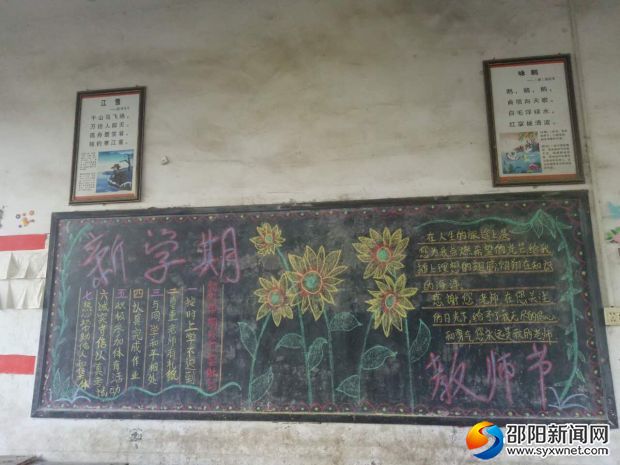 江雪
千山鸟飞绝，
万径人踪灭。
孤舟蓑笠翁，
独钓寒江雪。
咏鹅
鹅，鹅，鹅，
曲项向天歌。
白毛浮绿水，
红掌拨清波。
新学期
一按时上学不迟到
二尊重老师有礼貌
三与同学和平相处
四认真完成作业
五积极参加体育活动
六诚实守信认真考试
七热爱
在人生的旅途上是
您为我点燃希望的光芒给我
插上理想的翅膀翱翔在知识
的海洋
感谢您老师在您关注
的目光
和勇气您永远是我的老师
教师节
邵阳新闻网
www.syxwnet.com